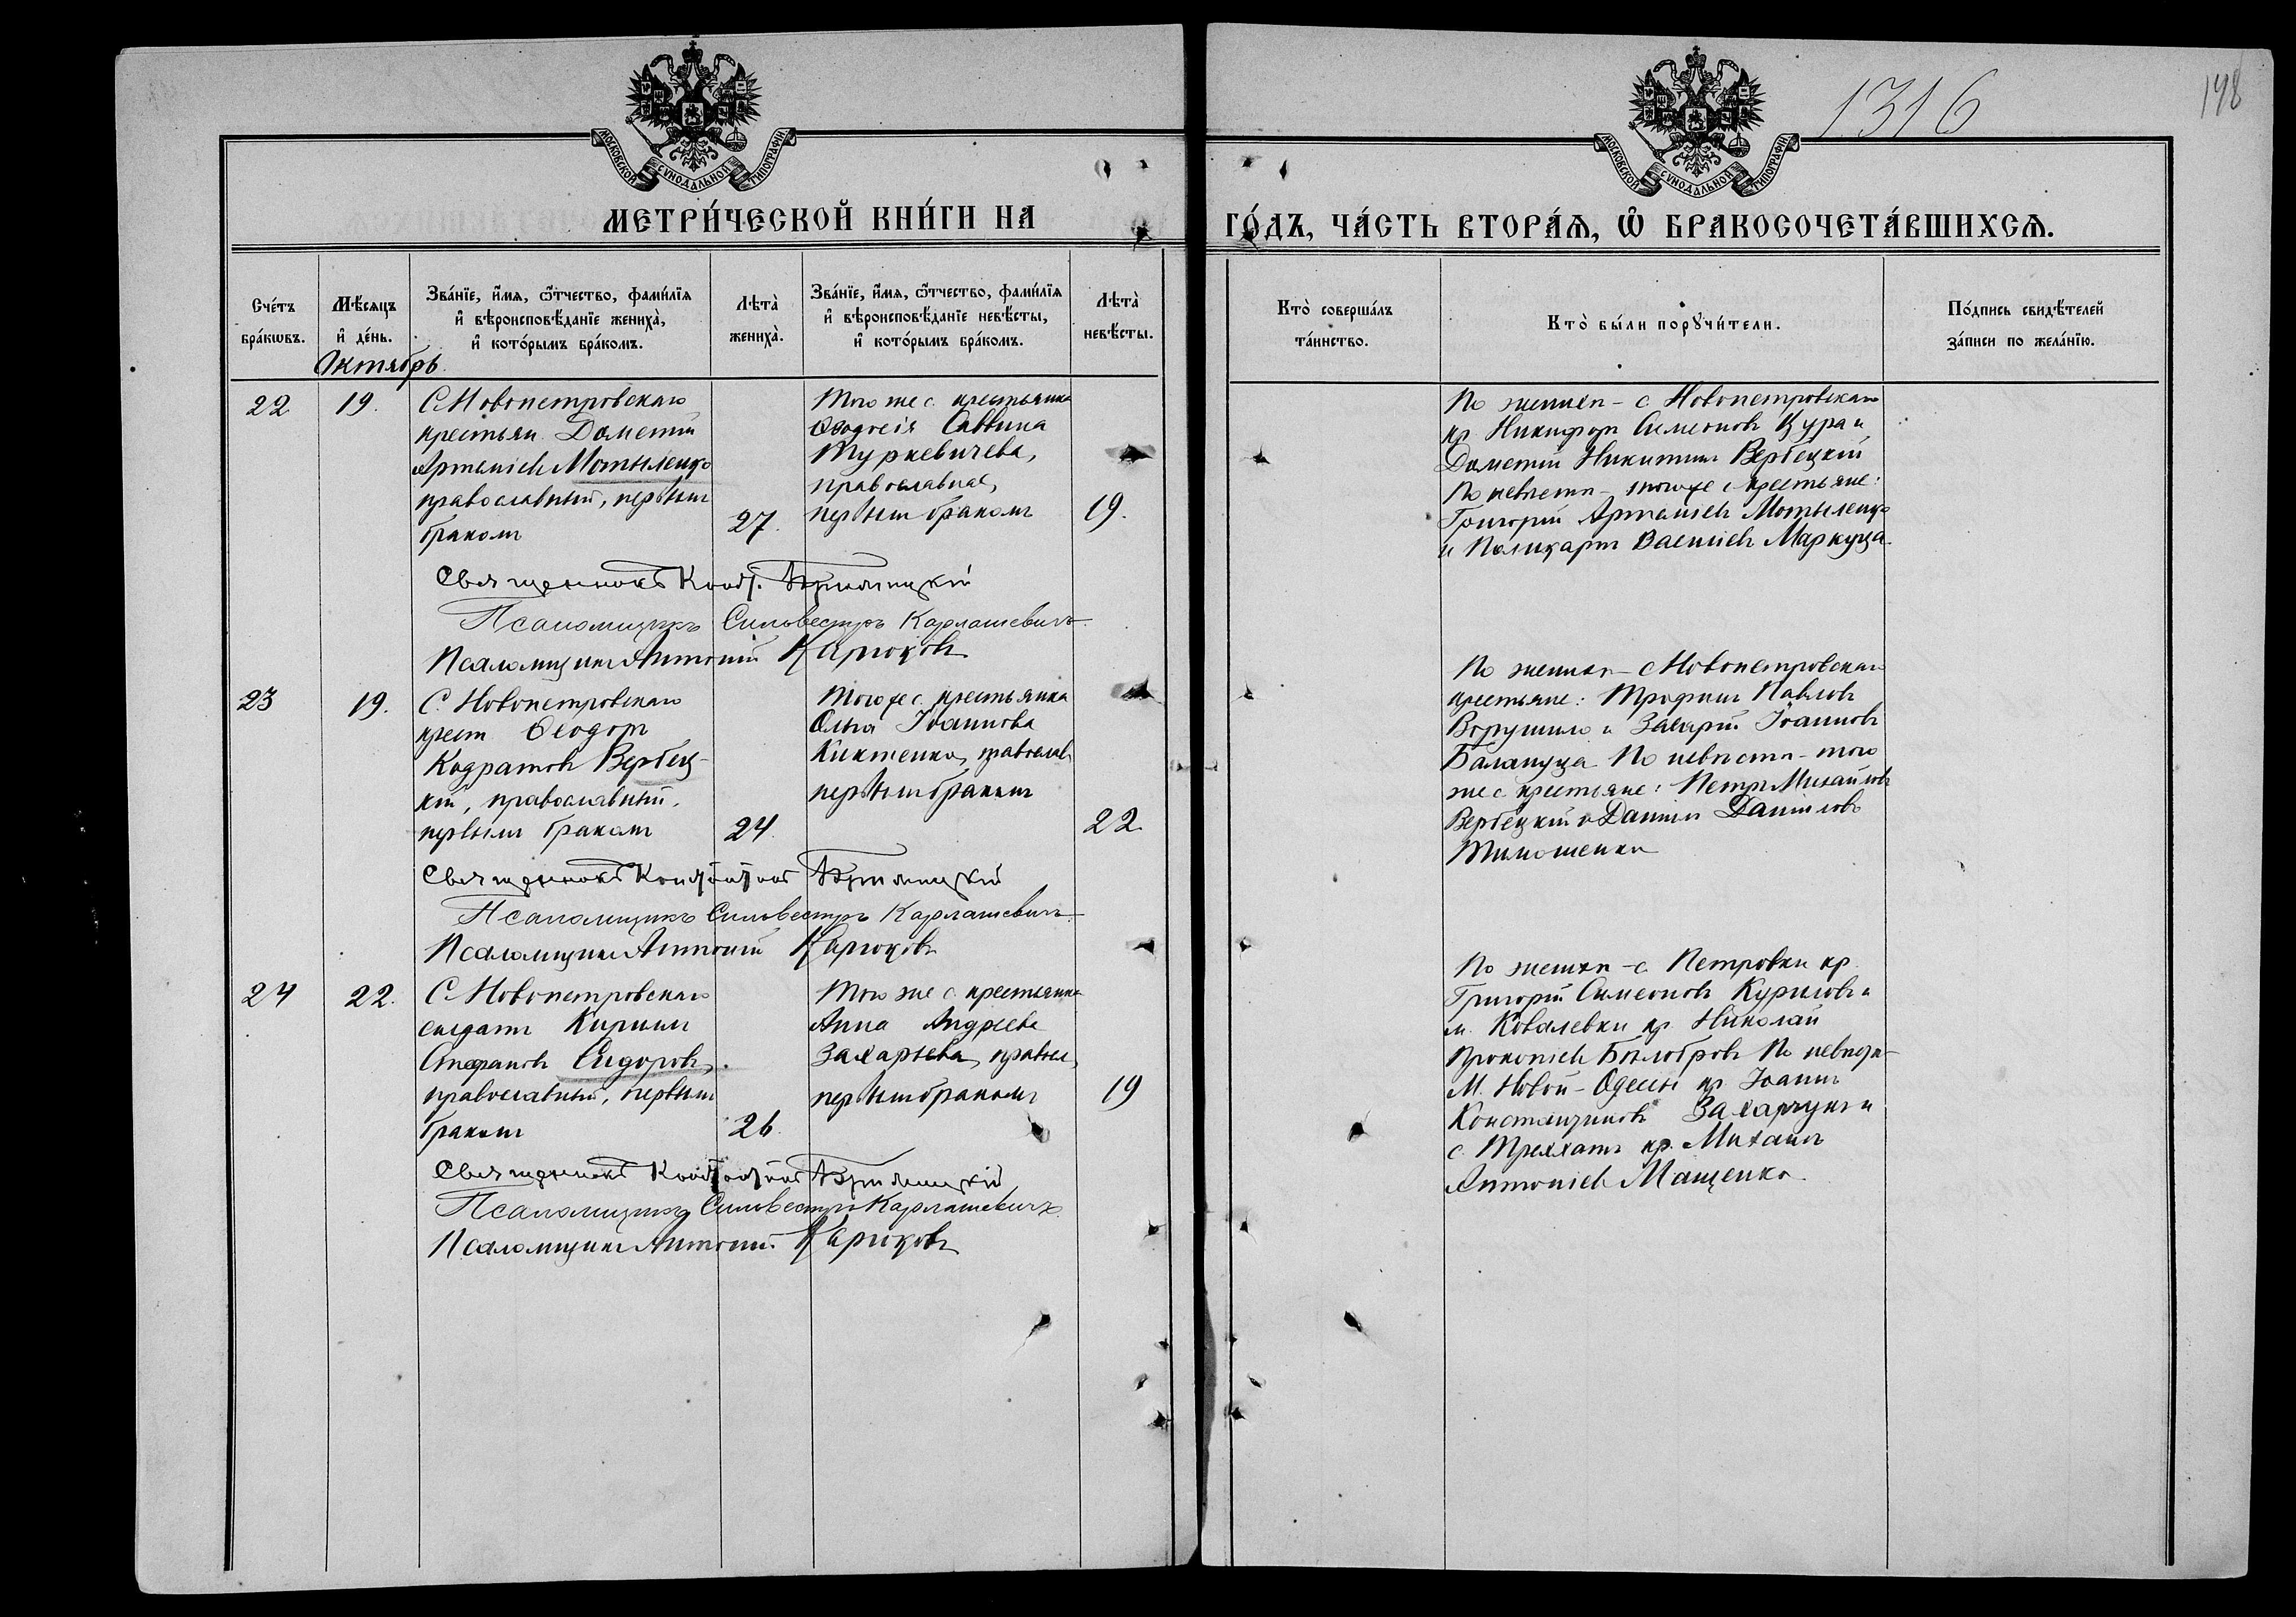 1316
148
МОСКОВСКОЙ СѴНОДАЛЬНОЙ ТИПОГРАФІИ
МОСКОВСКОЙ СѴНОДАЛЬНОЙ ТИПОГРАФІИ
МЕТРИ́ЧЕСКОЙ КНИ́ГИ НА
ГО́ДЪ, ЧА́СТЬ ВТОРА́Ѧ, Ѽ БРАКОСОЧЕТА́ВШИХСѦ.
Сче́тъ
бра́кѡвъ.
Мѣ́сяцъ
и҆ де́нь.
Зва́нїе, и҆́мѧ, ѻ҆́тчество, фами́лїѧ
и҆ вѣроисповѣ́данїе жениха̀,
и҆ кото́рымъ бра́комъ.
Лѣта̀
жениха̀.
Зва́нїе, и҆́мѧ, ѻ҆́тчество, фами́лїѧ
и҆ вѣроисповѣ́данїе невѣ́сты,
и҆ кото́рымъ бра́комъ.
Лѣта̀
невѣ́сты.
Кто̀ соверша́лъ
та́инство.
Кто̀ бы́ли порꙋчи́тели.
По́дпись свидѣ́телей
за́писи по жела́нїю.
Октябрь
22
19.
С. Новопетровскаго
крестьян. Дометій
Артеміевъ Мотыленко
православный, первым
бракомъ
27.
Того же с. крестьянка
Ѳеодосія Саввина
Туркевичева,
православная,
первым бракомъ
19.
По женихѣ – с. Новопетровскаго
кр. Никифоръ Симеоновъ Цура и
Дометій Никитинъ Вербецкій
По невѣстѣ – того же с. крестьяне:
Григорій Артеміевъ Мотыленко
и Поликарпъ Васильевъ Маркуца.
Священникъ Конст.
Псаломщикъ Сильвестръ Карлашевичъ
Псаломщикъ Антоній Карюковъ
23
19.
С. Новопетровскаго
крест. Ѳеодоръ
Кодратовъ Вербец-
кій, православный,
первымъ бракомъ
24.
Того же с. крестьянка
Ольга Іоаннова
Киктенко, православ.
первым бракомъ
22
По женихѣ – с. Новопетровскаго
крестьяне: Трофимъ Павловъ
Ворушило и Захарій Іоанновъ
Балануца По невѣстѣ – того
же с. крестьяне: Петръ Михайловъ
Вербецкій и Даніилъ Даниловъ
Тимошенко
Священникъ Константинъ
Псаломщикъ Сильвестръ Карлашевичъ
Псаломщикъ Антоній Карюковъ
24
22.
С. Новопетровскаго
солдатъ Кириллъ
Стефановъ Сидоровъ,
православный, первым
бракомъ
26.
Того же с. крестьянка
Анна Андреева
Захарьева, правосл,
первым бракомъ
19
По женихѣ – с. Петровки кр.
Григорій Симеоновъ Куриловъ и
м. Ковалевки кр. Николай
Прокопіевъ Бѣлобровъ По невѣстѣ –
М. Новой – Одессы кр. Іоаннъ
Константиновъ Захарчукъ и
с. Треххатъ кр. Михаилъ
Антоніевъ Мащенко.
Священникъ Константинъ
Псаломщикъ Сильвестръ Карлашевичъ
Псаломщикъ Антоній Карюковъ